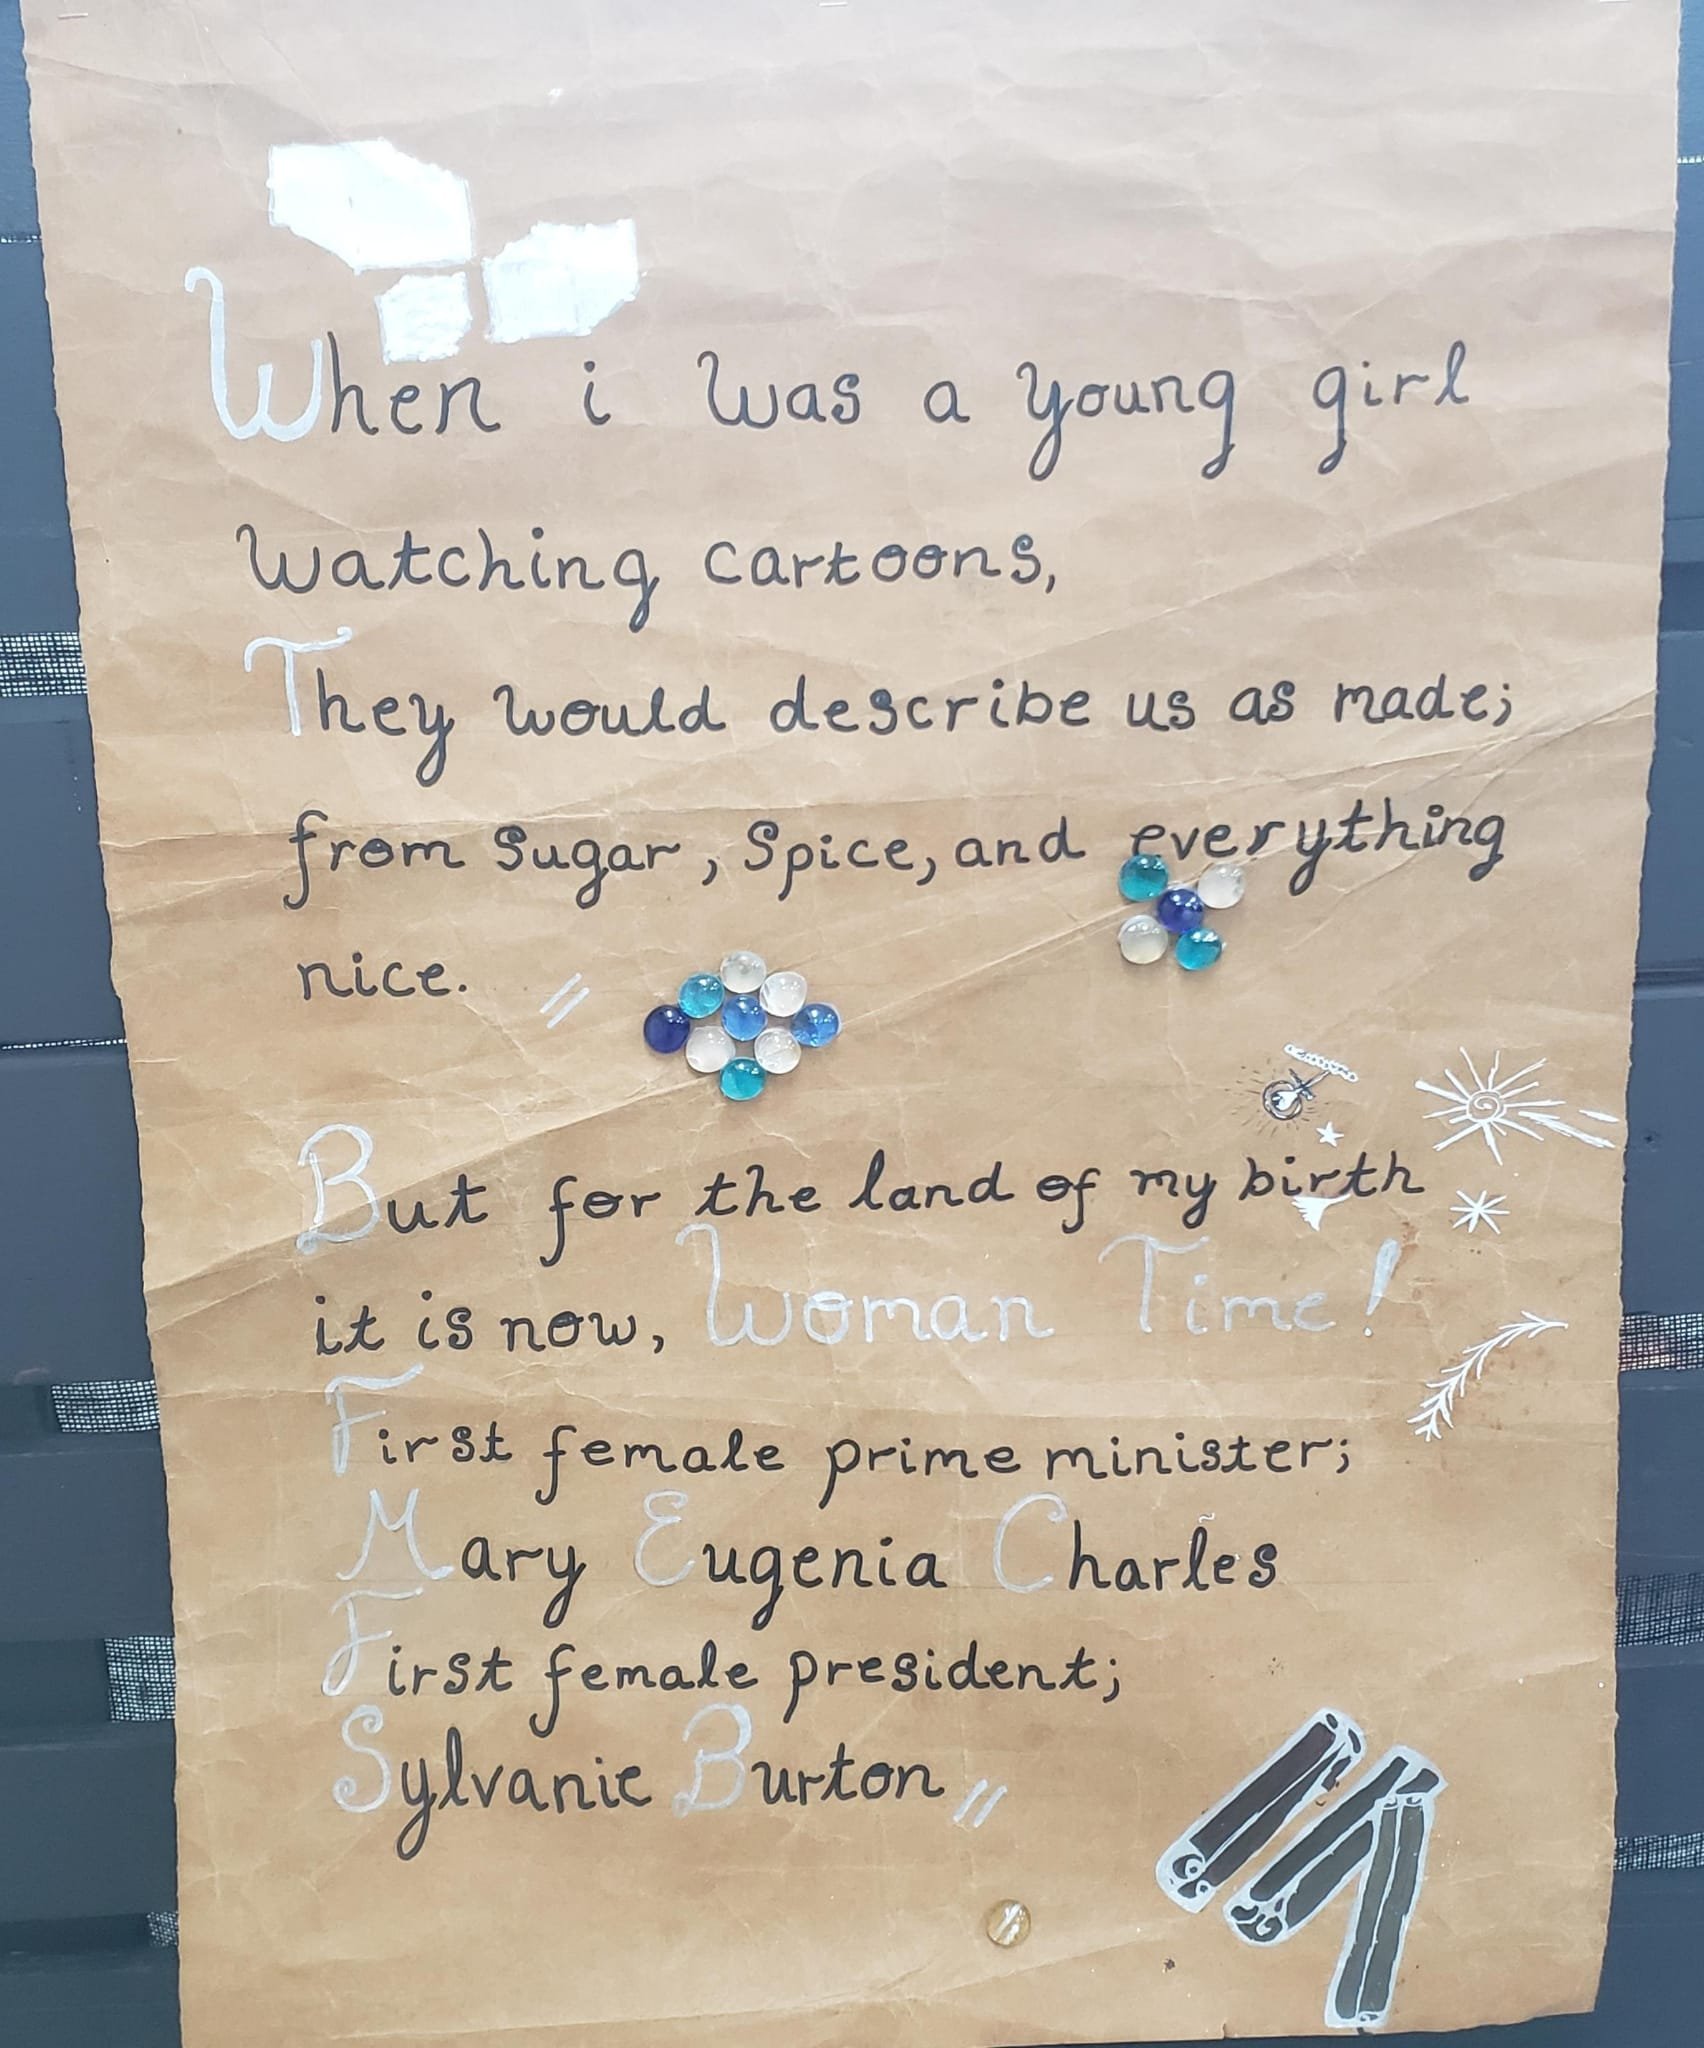 When i was a young girl
watching cartoons,
They would describe us as made;
from sugar, spice, and everything
nice. //
But for the land of my birth
it is now, Woman Time!
First female prime minister;
Mary Eugenia Charles
First female president;
Sylvanie Burton //